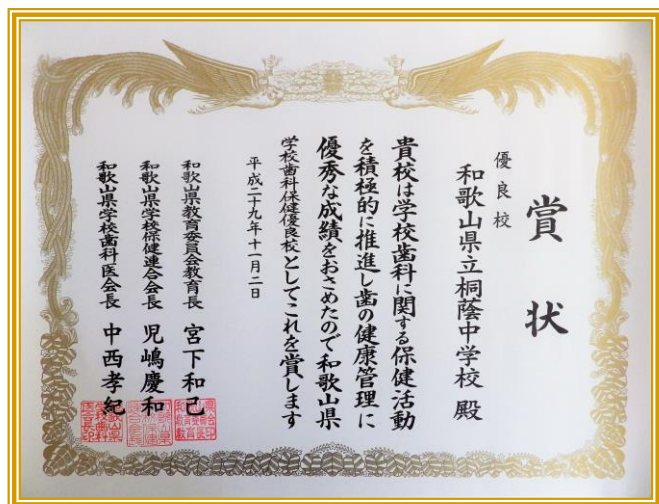 賞状
優良校
和歌山県立桐蔭中学校 殿
貴校は学校歯科に関する保健活動
を積極的に推進し歯の健康管理に
優秀な成績をおさめたので和歌山県
学校歯科保健優良校としてこれを賞します
平成二十九年十一月二日
和歌山県教育委員会教育長 宮下和己
和歌山県学校保健連合会長 児嶋慶和
和歌山県学校歯科医会長 中西孝紀